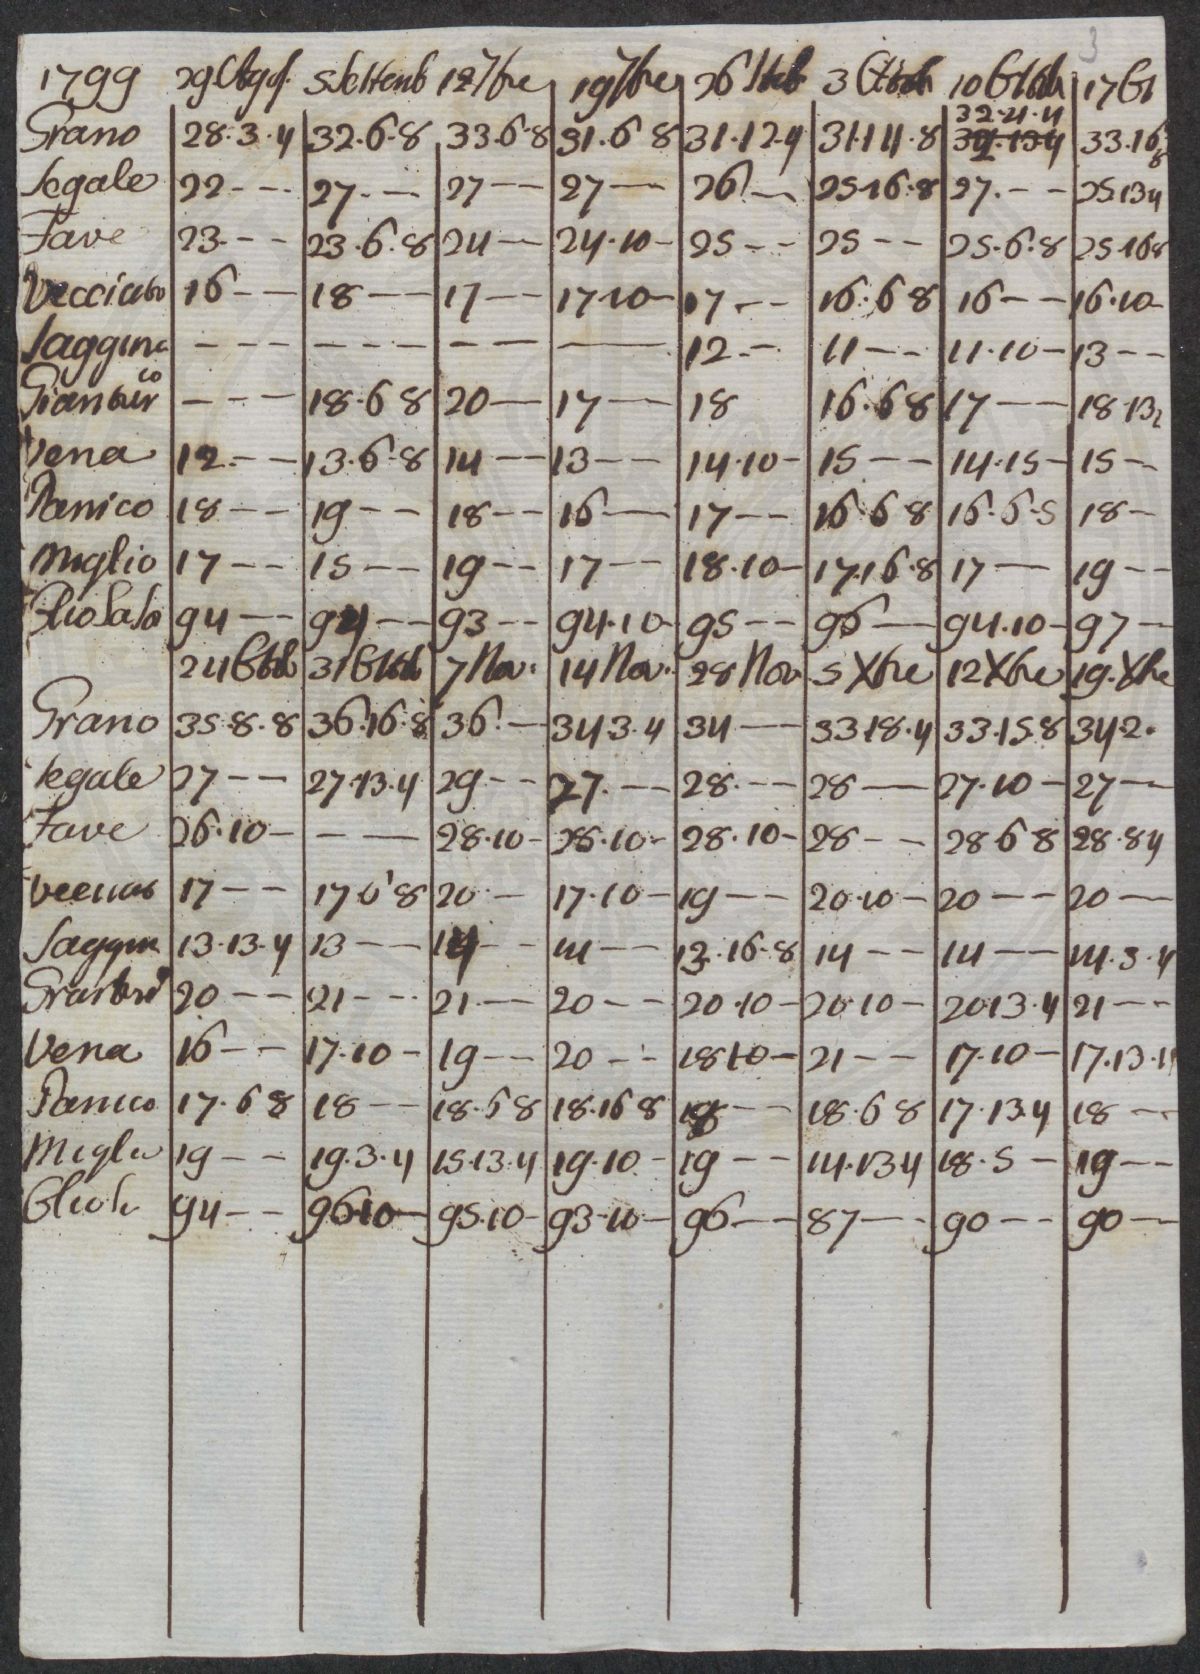 3
1799 29 Agost. 5 Settemb 12 7bre 19 7bre 26 Setteb 3 Ottob 10 Ottob 17 Ot
32.21.4
Grano 28.3.4 32.6.8 33.6.8 31.6 8 31.12.4 31.14.8 33.16 8
Segale 22 --- 27. -- 27 -- 27 -- 26 -- 25.16.8 27. -- 25.13 4
Fave 23. -- 23.6.8 24 -- 24.10 - 25 -- 25 -- 25.6.8 25.16 8
Vecciato 16 -- 18 -- 17 -- 17.10 - 17 -- 16.6 8 16 -- 16.10 -
Saggina --- --- --- -- 12 -- 11 -- 11.10 - 13 --
Gianturco --- 18.6 8 20 -- 17 -- 18 16.6 8 17 -- 18.13
Vena 12. -- 13.6.8 14 -- 13 -- 14.10 - 15 -- 14.15 - 15 --
Panico 18 -- 19 -- 18 -- 16 -- 17 -- 16 6 8 16.6.5 18 -
Miglio 17 -- 15 -- 19 -- 17 -- 18.10 - 17.16.8 17 -- 19 --
94 -- 94 -- 93 -- 94.10 - 95 -- 96 -- 94.10 - 97 --
24 Ottob 31 Ottob 7 Nov. 14 Nov. 28 Nov 5 Xbre 12 Xbre 19. Xbre
Grano 35.8.8 36.16.8 36. -- 34.3.4 34 -- 33.18.4 33.15.8 34.2.
Segale 27 -- 27.13.4 29 -- 27. -- 28. -- 28 -- 27.10 - 27 --
Fave 26.10 - --- 28.10 - 28.10 - 28.10 - 28 -- 28 6 8 28.8 4
17 -- 17 6 8 20 -- 17.10 - 19 -- 20.10 - 20 -- 20 --
Saggin 13.13.4 13 -- 14 -- 14 -- 13.16.8 14 -- 14 -- 14.3.4
20 -- 21 --- 21. -- 20 -- 20.10 - 20.10 - 20.13.4 21 ---
Vena 16 -- 17.10 - 19 -- 20 -- 18 10 - 21 -- 17.10 - 17.13.4
Panico 17.6 8 18 -- 18.6 8 18.16 8 18 -- 18.6 8 17.13 4 18 --
Miglio 19 -- 19.3.4 15.13.4 19.10 - 19 -- 14.13 4 18.5 - 19 --
94 -- 96.10 - 95.10 - 93.10 - 96 -- 87 -- 90 -- 90 --